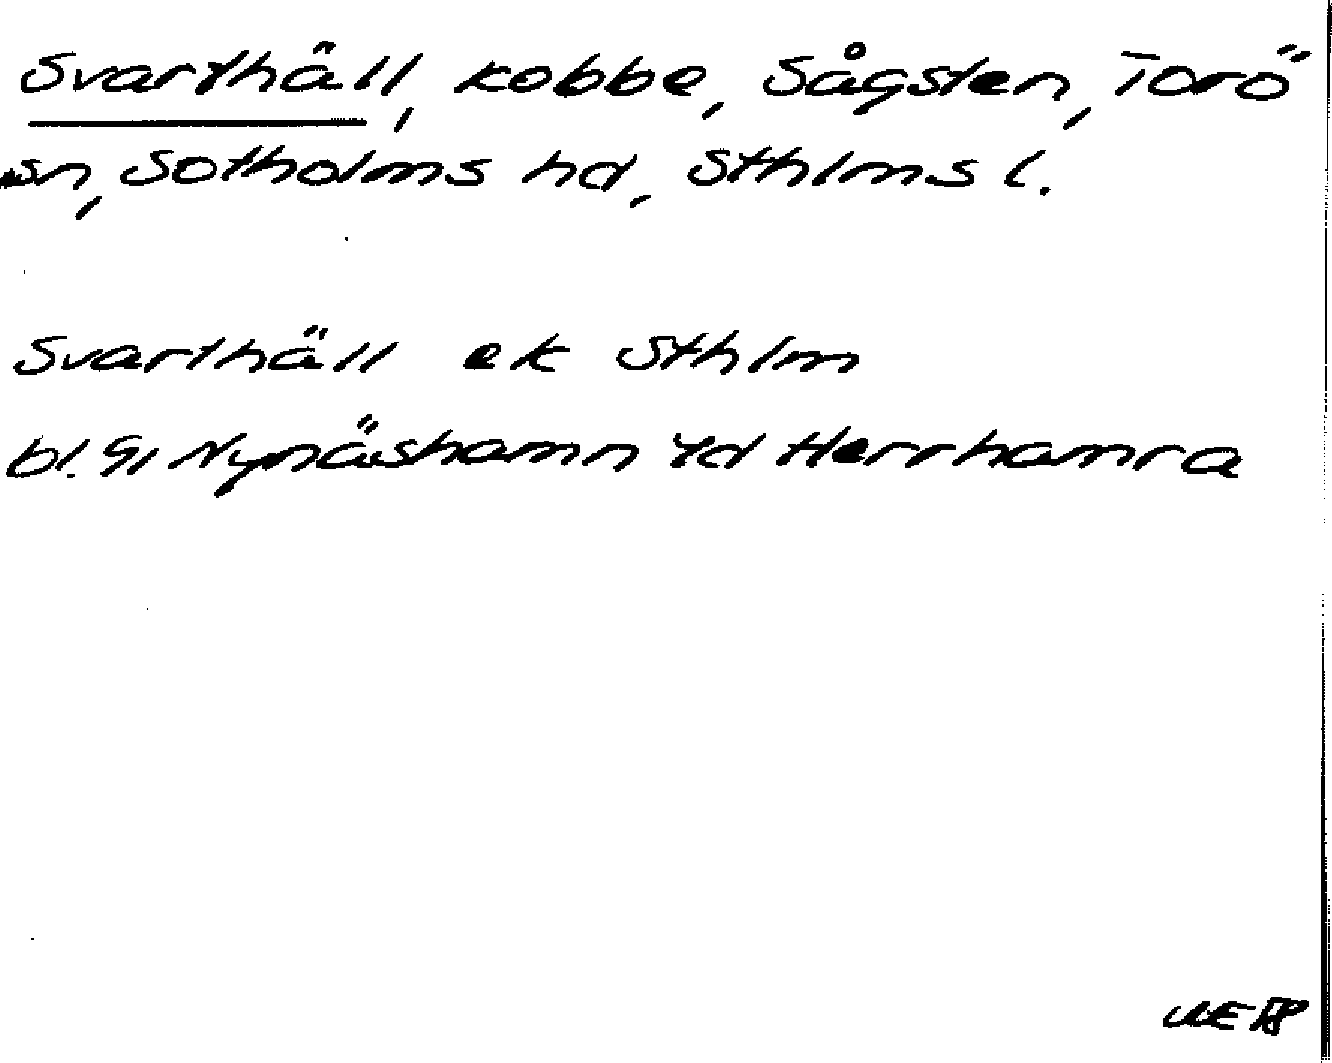 Svarthäll, kobbe, Sågsten, Torö
sn, Sotholms hd, Sthlms l.
Svarthäll ek Sthlm
bl. 91 Nynäshamn Yd Herrhamra